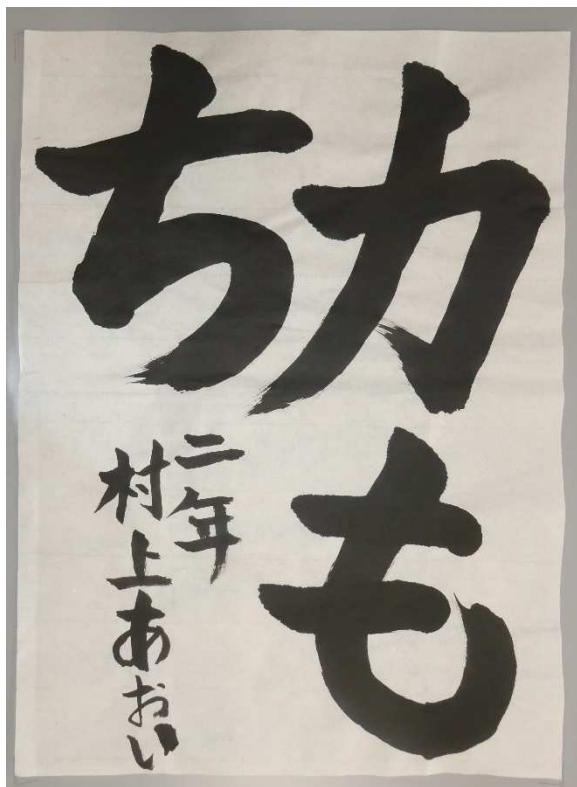 力も
ち
二年
村上あおい